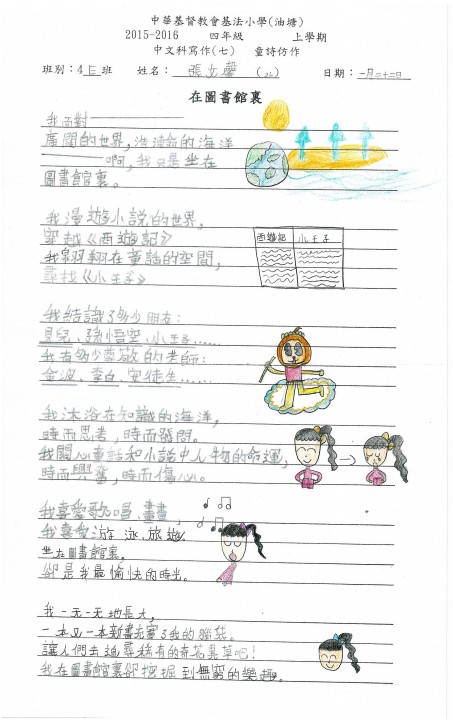 中華基督教會基法小學(油塘)
2015-2016 四年級 上學期
中文科寫作(七) 童詩仿作
班別：4E班 姓名：張文馨 日期：一月二十二日
在圖書館裏
我面對————
廣闊的世界，浩瀚的海洋
————啊，我只是坐在
圖書館裏。
我漫遊小說的世界，
穿越《西遊記》
西遊記 小王子
我翱翔在童話的空間，
尋找《小王子》
我結識了多少朋友：
貝兒、孫悟空、小王子……
我有多少尊敬的老師：
金波、李白、安徒生……
我沐浴在知識的海洋，
時而思考，時而發問。
我關心童話和小說中人物的命運，
時而興奮，時而傷心。
我喜愛歌唱、畫畫，
我喜愛游泳、旅遊。
坐在圖書館裏，
卻是我最愉快的時光。
我一天一天地長大，
一本又一本新書充實了我的腦袋。
讓人們去追尋稀有的奇花異草吧！
我在圖書館裏卻挖掘到無窮的樂趣。